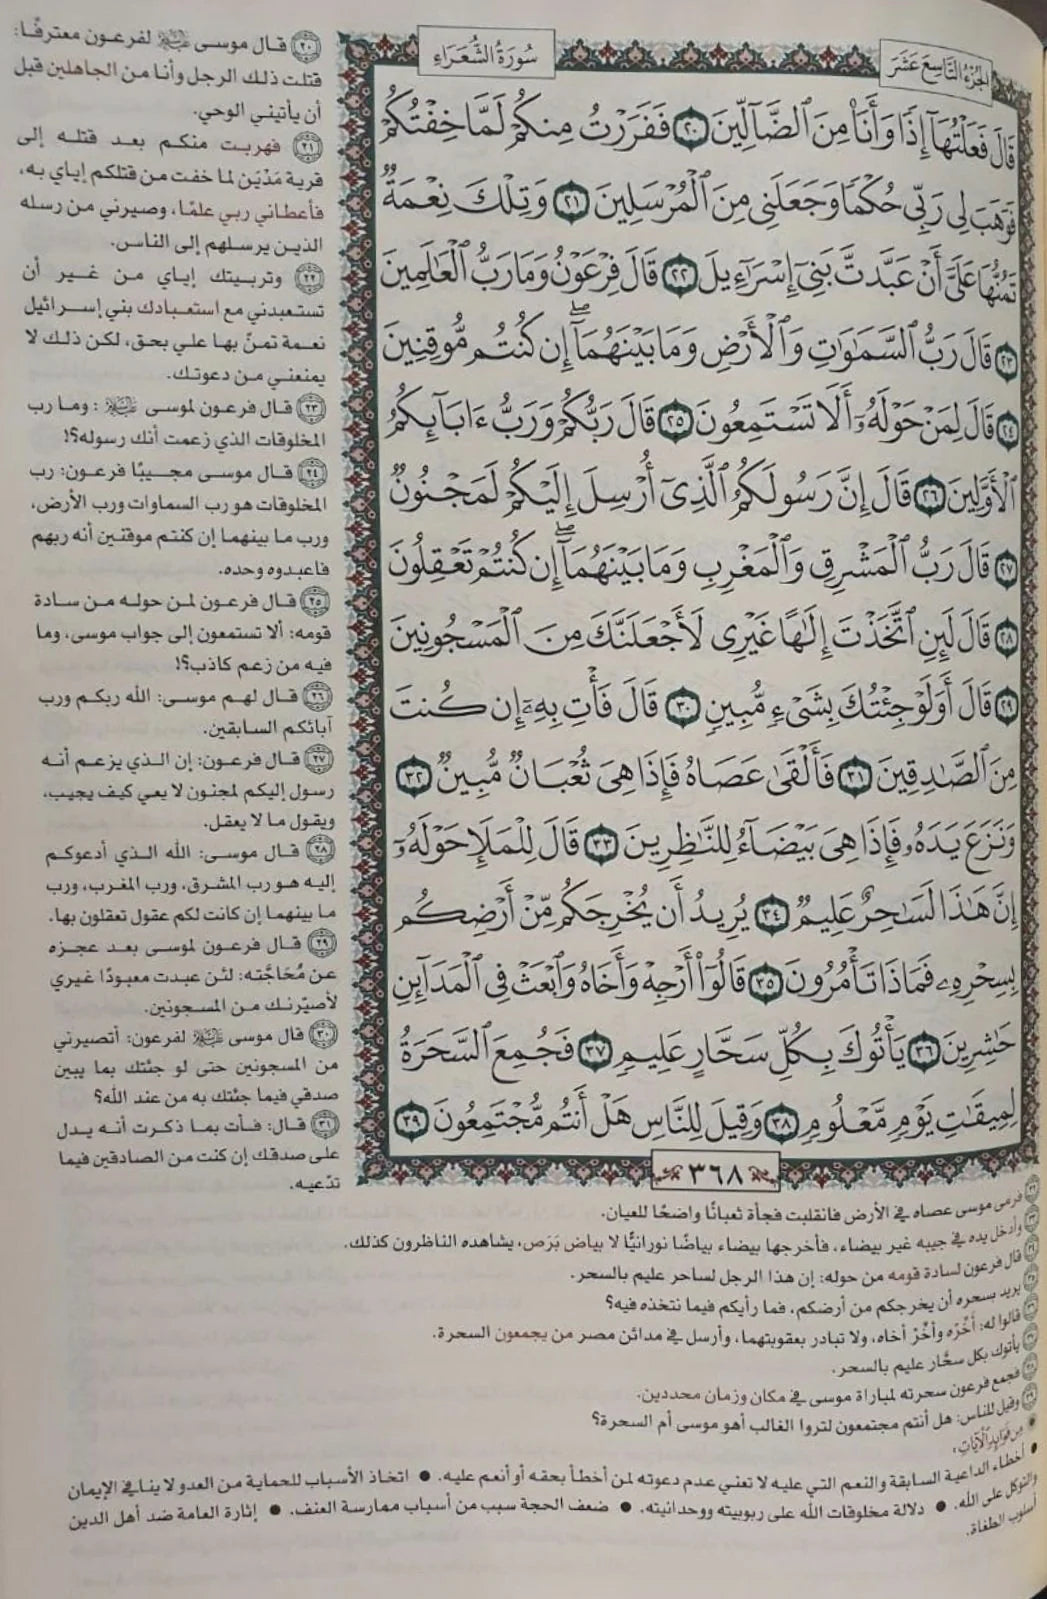 الجُزْءُ التَّاسِعَ عَشَرَ
سُورَةُ الشُّعَرَاءِ
قَالَ فَعَلْتُهَآ إِذًا وَأَنَا۠ مِنَ ٱلضَّآلِّينَ ٢٠ فَفَرَرْتُ مِنكُمْ لَمَّا خِفْتُكُمْ
فَوَهَبَ لِى رَبِّى حُكْمًا وَجَعَلَنِى مِنَ ٱلْمُرْسَلِينَ ٢١ وَتِلْكَ نِعْمَةٌ
تَمُنُّهَا عَلَىَّ أَنْ عَبَّدتَّ بَنِىٓ إِسْرَٰٓءِيلَ ٢٢ قَالَ فِرْعَوْنُ وَمَا رَبُّ ٱلْعَٰلَمِينَ
٢٣ قَالَ رَبُّ ٱلسَّمَٰوَٰتِ وَٱلْأَرْضِ وَمَا بَيْنَهُمَآ ۖ إِن كُنتُم مُّوقِنِينَ
٢٤ قَالَ لِمَنْ حَوْلَهُۥٓ أَلَا تَسْتَمِعُونَ ٢٥ قَالَ رَبُّكُمْ وَرَبُّ ءَابَآئِكُمُ
ٱلْأَوَّلِينَ ٢٦ قَالَ إِنَّ رَسُولَكُمُ ٱلَّذِىٓ أُرْسِلَ إِلَيْكُمْ لَمَجْنُونٌ
٢٧ قَالَ رَبُّ ٱلْمَشْرِقِ وَٱلْمَغْرِبِ وَمَا بَيْنَهُمَآ ۖ إِن كُنتُمْ تَعْقِلُونَ
٢٨ قَالَ لَئِنِ ٱتَّخَذْتَ إِلَٰهًا غَيْرِى لَأَجْعَلَنَّكَ مِنَ ٱلْمَسْجُونِينَ
٢٩ قَالَ أَوَلَوْ جِئْتُكَ بِشَىْءٍ مُّبِينٍ ٣٠ قَالَ فَأْتِ بِهِۦٓ إِن كُنتَ
مِنَ ٱلصَّٰدِقِينَ ٣١ فَأَلْقَىٰ عَصَاهُ فَإِذَا هِىَ ثُعْبَانٌ مُّبِينٌ ٣٢
وَنَزَعَ يَدَهُۥ فَإِذَا هِىَ بَيْضَآءُ لِلنَّٰظِرِينَ ٣٣ قَالَ لِلْمَلَإِ حَوْلَهُۥٓ
إِنَّ هَٰذَا لَسَٰحِرٌ عَلِيمٌ ٣٤ يُرِيدُ أَن يُخْرِجَكُم مِّنْ أَرْضِكُم
بِسِحْرِهِۦ فَمَاذَا تَأْمُرُونَ ٣٥ قَالُوٓا۟ أَرْجِهْ وَأَخَاهُ وَٱبْعَثْ فِى ٱلْمَدَآئِنِ
حَٰشِرِينَ ٣٦ يَأْتُوكَ بِكُلِّ سَحَّارٍ عَلِيمٍ ٣٧ فَجُمِعَ ٱلسَّحَرَةُ
لِمِيقَٰتِ يَوْمٍ مَّعْلُومٍ ٣٨ وَقِيلَ لِلنَّاسِ هَلْ أَنتُم مُّجْتَمِعُونَ ٣٩
٣٦٨
٢٠ قال موسى ﵇ لفرعون معترفًا:
قتلت ذلك الرجل وأنا من الجاهلين قبل
أن يأتيني الوحي.
٢١ فهربت منكم بعد قتله إلى
قرية مَدْيَن لما خفت من قتلكم إياي به،
فأعطاني ربي علمًا، وصيرني من رسله
الذين يرسلهم إلى الناس.
٢٢ وتربيتك إياي من غير أن
تستعبدني مع استعبادك بني إسرائيل
نعمة تمنّ بها علي بحق، لكن ذلك لا
يمنعني من دعوتك.
٢٣ قال فرعون لموسى ﵇: وما رب
المخلوقات الذي زعمت أنك رسوله؟!
٢٤ قال موسى مجيبًا فرعون: رب
المخلوقات هو رب السماوات ورب الأرض،
ورب ما بينهما إن كنتم موقنين أنه ربهم
فاعبدوه وحده.
٢٥ قال فرعون لمن حوله من سادة
قومه: ألا تستمعون إلى جواب موسى، وما
فيه من زعم كاذب؟!
٢٦ قال لهم موسى: الله ربكم ورب
آبائكم السابقين.
٢٧ قال فرعون: إن الذي يزعم أنه
رسول إليكم لمجنون لا يعي كيف يجيب،
ويقول ما لا يعقل.
٢٨ قال موسى: الله الذي أدعوكم
إليه هو رب المشرق، ورب المغرب، ورب
ما بينهما إن كانت لكم عقول تعقلون بها.
٢٩ قال فرعون لموسى بعد عجزه
عن مُحَاجَّته: لئن عبدت معبودًا غيري
لأصيّرنك من المسجونين.
٣٠ قال موسى ﵇ لفرعون: أتصيرني
من المسجونين حتى لو جئتك بما يبين
صدقي فيما جئتك به من عند الله؟
٣١ قال: فأت بما ذكرت أنه يدل
على صدقك إن كنت من الصادقين فيما
تدّعيه.
٣٢ فرمى موسى عصاه في الأرض فانقلبت فجأة ثعبانًا واضحًا للعيان.
٣٣ وأدخل يده في جيبه غير بيضاء، فأخرجها بيضاء بياضًا نورانيًّا لا بياض بَرَص، يشاهده الناظرون كذلك.
٣٤ قال فرعون لسادة قومه من حوله: إن هذا الرجل لساحر عليم بالسحر.
٣٥ يريد بسحره أن يخرجكم من أرضكم، فما رأيكم فيما نتخذه فيه؟
٣٦ قالوا له: أخّره وأخّرْ أخاه، ولا تبادر بعقوبتهما، وأرسل في مدائن مصر من يجمعون السحرة.
٣٧ يأتوك بكل سحَّار عليم بالسحر.
٣٨ فجمع فرعون سحرته لمباراة موسى في مكان وزمان محددين.
٣٩ وقيل للناس: هل أنتم مجتمعون لتروا الغالب أهو موسى أم السحرة؟
مِن فَوَائِدِ الآيَاتِ:
• أخطاء الداعية السابقة والنعم التي عليه لا تعني عدم دعوته لمن أخطأ بحقه أو أنعم عليه. • اتخاذ الأسباب للحماية من العدو لا ينافي الإيمان
والتوكل على الله. • دلالة مخلوقات الله على ربوبيته ووحدانيته. • ضعف الحجة سبب من أسباب ممارسة العنف. • إثارة العامة ضد أهل الدين
أسلوب الطغاة.